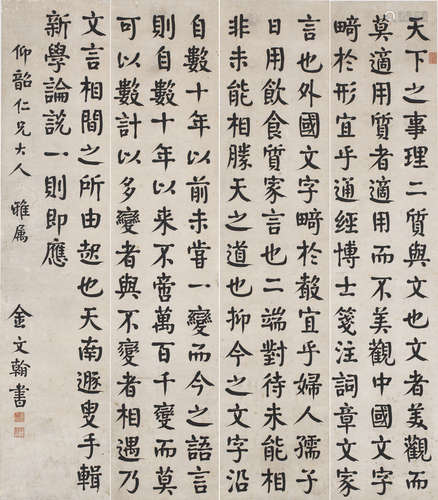 天下之事理二質與文也文者美觀而
莫適用質者適用而不美觀中國文字
畸於形宜乎通經博士箋注詞章文家
言也外國文字畸於殸宜乎婦人孺子
日用飲食質家言也二端對待未能相
非未能相勝天之道也抑今之文字沿
自數十年以前未嘗一變而今之語言
則自數十年以來不啻萬百千變而莫
可以數計以多變者與不變者相遇乃
文言相間之所由起也天南遯叟手輯
新學論說一則即應
仰韶仁兄大人 雅属
金文翰書